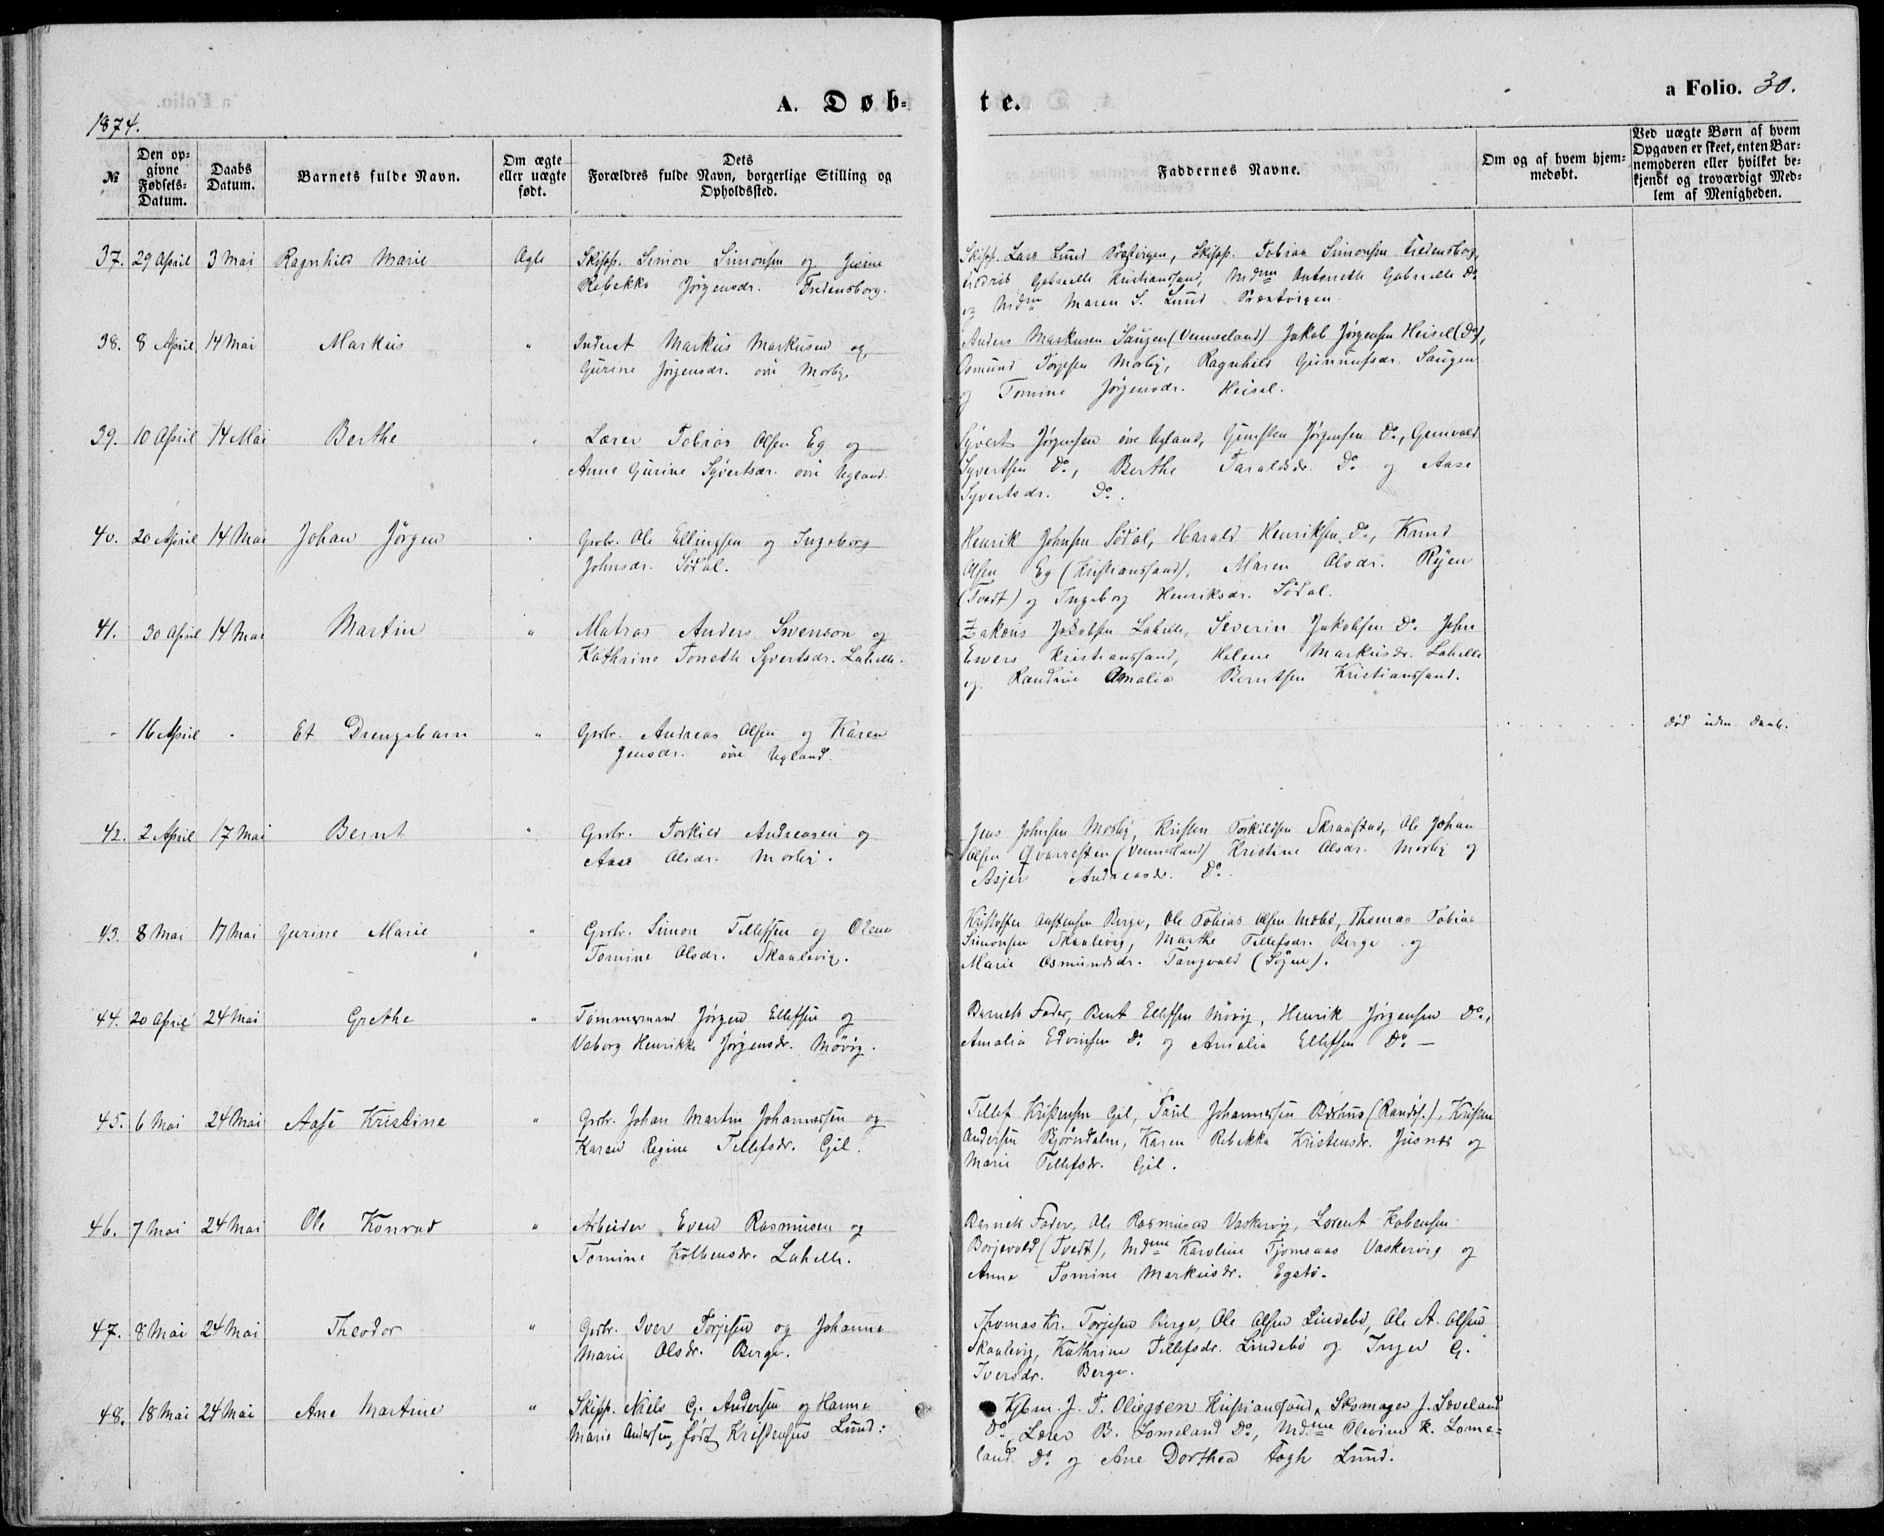 A. Døb-
te.
a Folio. 30.
1874.
№
Den op-
givne
Fødsels-
Datum.
Daabs
Datum.
Barnets fulde Navn.
Om ægte
eller uægte
født.
Dets
Forældres fulde Navn, borgerlige Stilling og
Opholdssted.
Faddernes Navne.
Om og af hvem hjem-
medøbt.
Ved uægte Børn af hvem
Opgaven er skeet, enten Bar-
nemoderen eller hvilket be-
kjendt og troværdigt Med-
lem af Menigheden.
37. 29 April 3 Mai Ragnhild Marie Ægte Skipp. Simon Simonsen og Jesine
Rebekka Jørgensdr. Fredensborg.
Skipp. Lars Lund Præstvigen, Skipp. Tobias Simonsen Fredensborg,
Gabrielle Kristianssand, Mdme Antonette Gabrielle Do
og Mdme Maren S. Lund Præstvigen.
38. 8 April 14 Mai Markus " Inderst Markus Markusen og
Gurine Jørgensdr. øvre Mosby.
Anders Markusen Saugen (Venneland) Jakob Jørgensen Heisel (Do),
Osmund Torjesen Mosby, Ragnhild Gunnufsdr. Saugen
og Tomine Jørgensdr. Heisel.
39. 10 April 14 Mai Berthe " Lærer Tobias Olsen Eg og
Anne Gurine Syvertsdr. øvre Ugland.
Syvert Jørgensen øvre Ugland, Gunsten Jørgensen Do, Gunvald
Syvertsen Do, Berthe Taraldsdr. Do og Aase
Syvertsdr. Do.
40. 20 April 14 Mai Johan Jørgen " Grbr. Ole Ellingsen og Ingeborg
Johnsdr. Sødal.
Henrik Johnsen Sødal, Harald Henriksen Do, Knud
Olsen Eg (Kristianssand), Maren Olsdr. Ryen
(Tvedt) og Ingeborg Henriksdr. Sødal.
41. 30 April 14 Mai Martin " Matros Anders Swenson og
Kathrine Tonette Syvertsdr. Lahelle.
Zakæus Jakobsen Lahelle, Severin Jakobsen Do. John
Ewers Kristianssand, Helene Markusdr. Lahelle
og Randine Amalia Berntsen Kristianssand.
- 16 April - Et Drengebarn " Grbr. Andreas Olsen og Karen
Jensdr. øvre Ugland.
død uden Daab.
42. 2 April 17 Mai Bernt " Grbr. Torkild Andreasen og
Aase Olsdr. Mosby.
Jens Johnsen Mosby, Kristen Torkildsen Straastad, Ole Johan
Olsen Qvarrestein (Venneland) Kristine Olsdr. Mosby og
Asjer Andreasdr. Do.
43. 8 Mai 17 Mai Gurine Marie " Grbr. Simon Tellefsen og Olene
Tomine Olsdr. Skaalevig.
Kristoffer Austensen Berge, Ole Tobias Olsen Mæbø, Thomas Tobias
Simonsen Skaalevig, Marthe Tellefsdr. Berge og
Marie Osmundsdr. Tangvald (Søgne).
44. 20 April 24 Mai Grethe " Tømmermand Jørgen Ellefsen og
Vaborg Henrikke Jørgensdr. Møvig.
Barnets Fader, Bent Ellefsen Møvig, Henrik Jørgensen Do,
Amalia Edvinsen Do og Amalia Ellefsen Do —
45. 6 Mai 24 Mai Aase Kristine " Grbr. Johan Martin Johannessen og
Karen Regine Tellefsdr. Gil.
Tellef Kristensen Gil, Paul Johannessen Bærhus (Randøs.), Kristen
Andersen Bjørndalen, Karen Rebekka Kristensdr. Jusnæs og
Marie Tellefsdr. Gil.
46. 7 Mai 24 Mai Ole Konrad " Arbeider Even Rasmusen og
Tomine Kolbensdr. Lahelle.
Barnets Fader, Ole Rasmusen Vaskevig, Lorent Kobensen
Borjevold (Tvedt), Mdme Karoline Tjomsaas Vaskevig og
Anne Tomine Markusdr. Egebø.
47. 8 Mai 24 Mai Theodor " Grbr. Iver Torjesen og Johanne
Marie Olsdr. Berge.
Thomas Kr. Torjesen Berge, Ole Olsen Lindebø, Ole A. Olsen
Skaalevig, Kathrine Tellefsdr. Lindebø og Inger G.
Iversdr. Berge.
48. 18 Mai 24 Mai Ane Martine " Skipp. Niels G. Andersen og Hanne
Marie Andersen, født Kristensen Lund:
Kjbm. J. T. Oliegsen Kristianssand, Skomager J. Soveland
Do, Lærer B. Lomeland Do, Mdme Olevine K. Lome-
land Do og Ane Dorthea Fogh Lund.